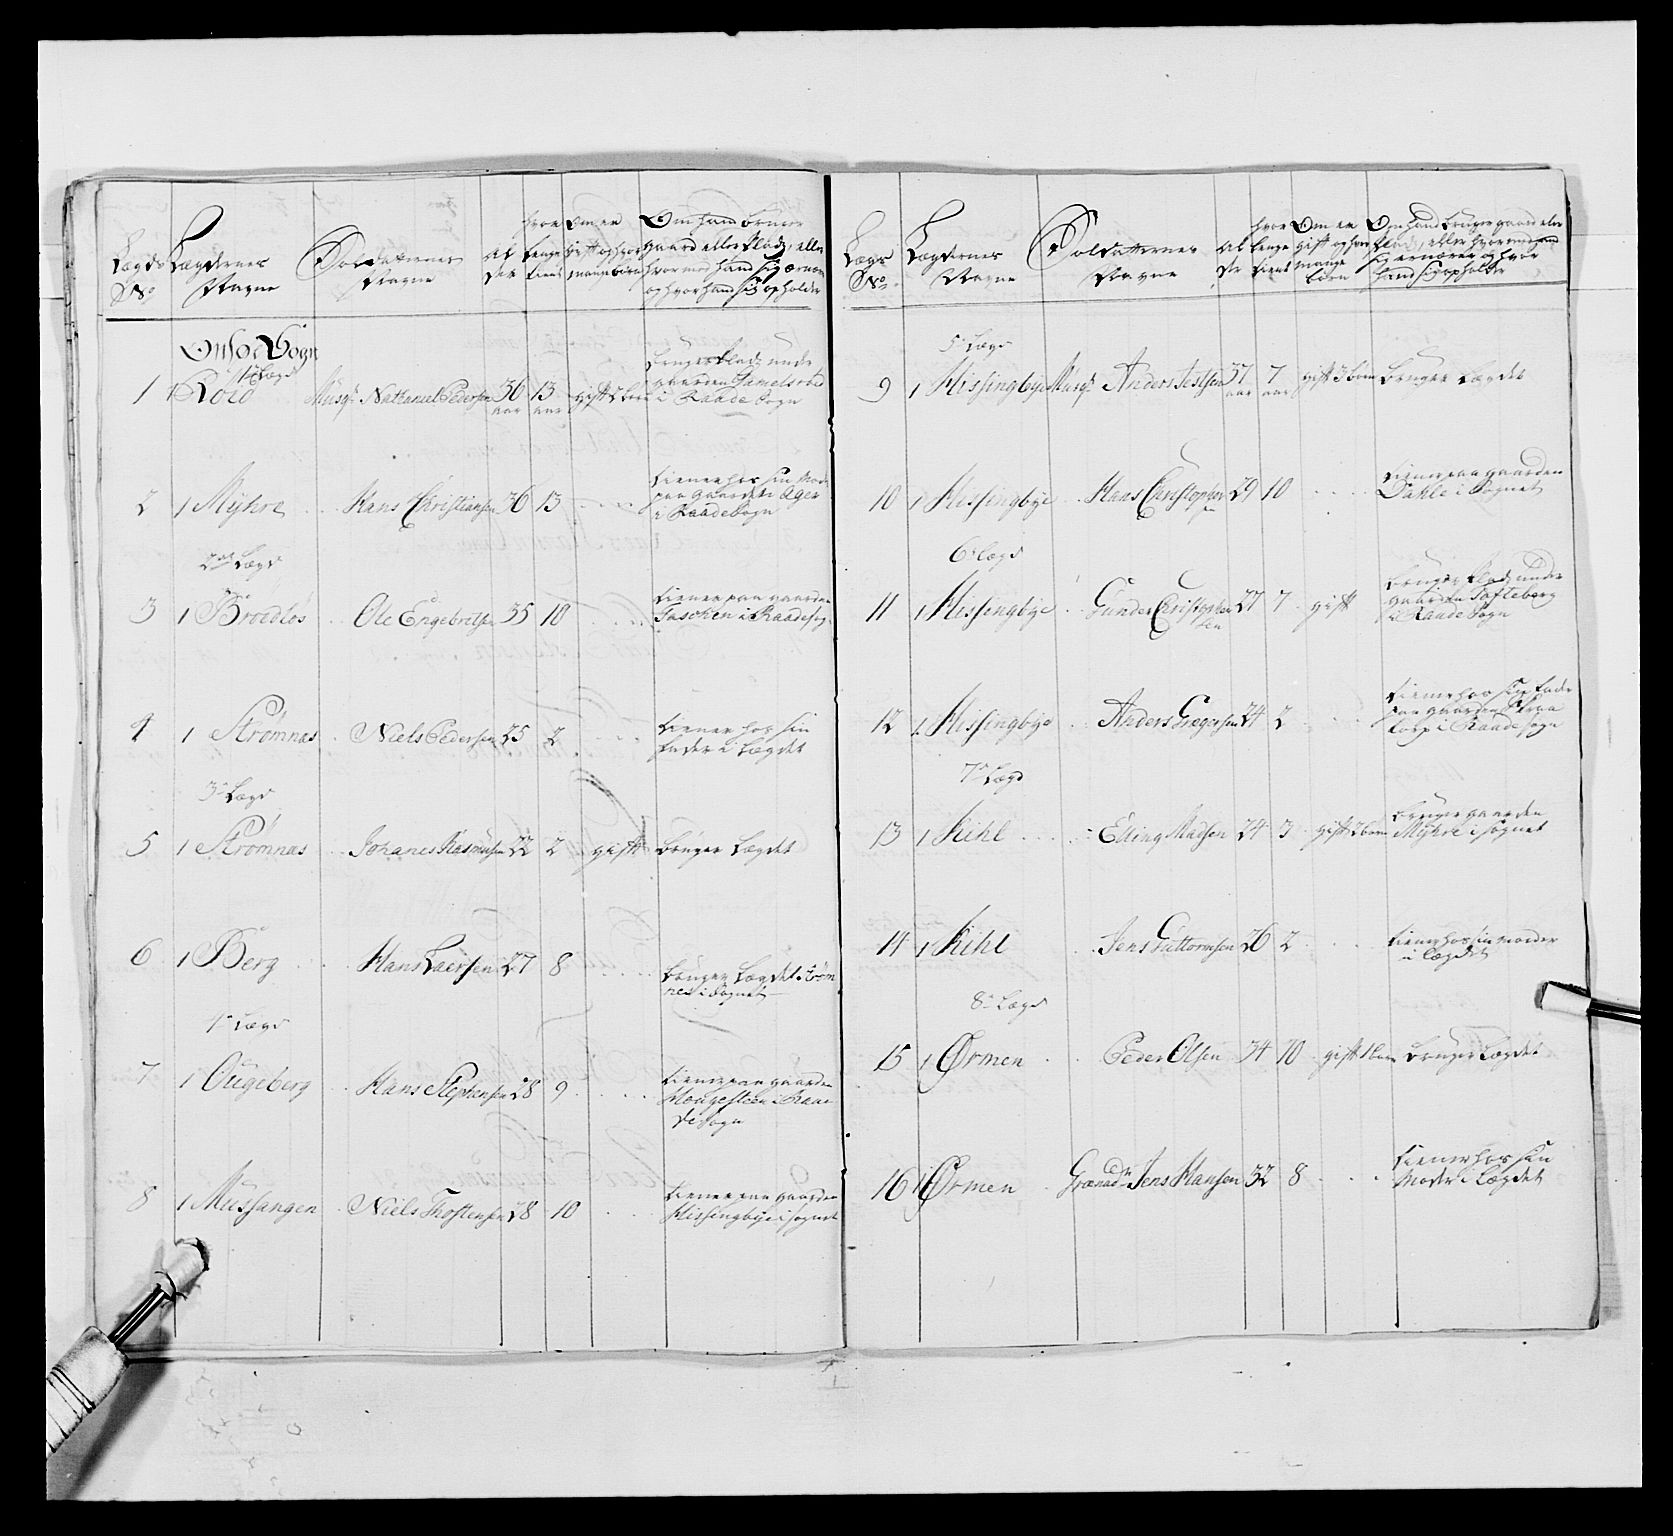 Lægds No
Lægdernes Nagne
Soldatternes Nagne
Al der
hvor lenge tient
Om er gift og hvor mange børn
Om hand bruger gaard eller Plads, eller hvormed hand sig ernærer og hvor hand sig opholder
Onsøe Sogn
1te Lægd
1 1 Musqr Nathanael Pedersen 36 aar 13 aar gift børn bruger Plads under gaarden i Raade Sogn
2 1 Myhre Hans Christiansen 36 13 tiener hos sin paa gaarden Ager i Raade Sogn
2det Lægd
3 1 Broedløs Ole Engebretsen 35 10 tiener paa gaarden i Raade sogn
4 1 Strømnæs Niels Pedersen 25 2 tiener hos sin fader i Lægdet
3e Lægd
5 1 Strømnæs Johanes Rasmusen 22 2 gift bruger Lægdet
6 1 Berg Hans Laersen 27 8 bruger Lægdet Strøm nes i Sognet
4e Lægd
7 1 Ougeberg Hans Stephensen 28 9 tiener paa gaarden Mougesteen i Raade Sogn
8 1 Mussangen Niels Thostensen 28 10 tiener paa gaarden Hissingbye i sognet
Lægs No
Lægdernes Nagne
Soldatternes Nagne
Al der
hvor lenge tient
Om er gift og hvor mange børn
Om hand bruger gaard eller Plads, eller hvormed hand sig ernærer og hvor hand sig opholder
5e Lægd
9 1 Hissingbye Musqr Anders 37 aar 7 aar gift 3 børn bruger Lægdet
10 1 Hissingbye Hans Christophersen 29 10 tiener paa gaarden Dahle i Sognet
6e Lægd
11 1 Hissingbye Gunder Christophersen 27 7 gift bruger Plads under gaarden Tofteberg i Raade Sogn
12 1 Hissingbye Anders Gregersen 24 2 tiener hos sin fader paa gaarden i Raade sogn
7e Lægd
13 1 Kihl Elling Madsen 24 3 gift 2 børn bruger gaarden Myhre i sognet
14 1 Kihl Jens Guttormsen 26 2 tiener hos sin moder i Lægdet
8e Lægd
15 1 Ørmen Peder Olsen 34 10 gift 1 barn bruger Lægdet
16 1 Ørmen Grenadr Jens Hansen 32 8 tiener hos sin Moder i Lægdet